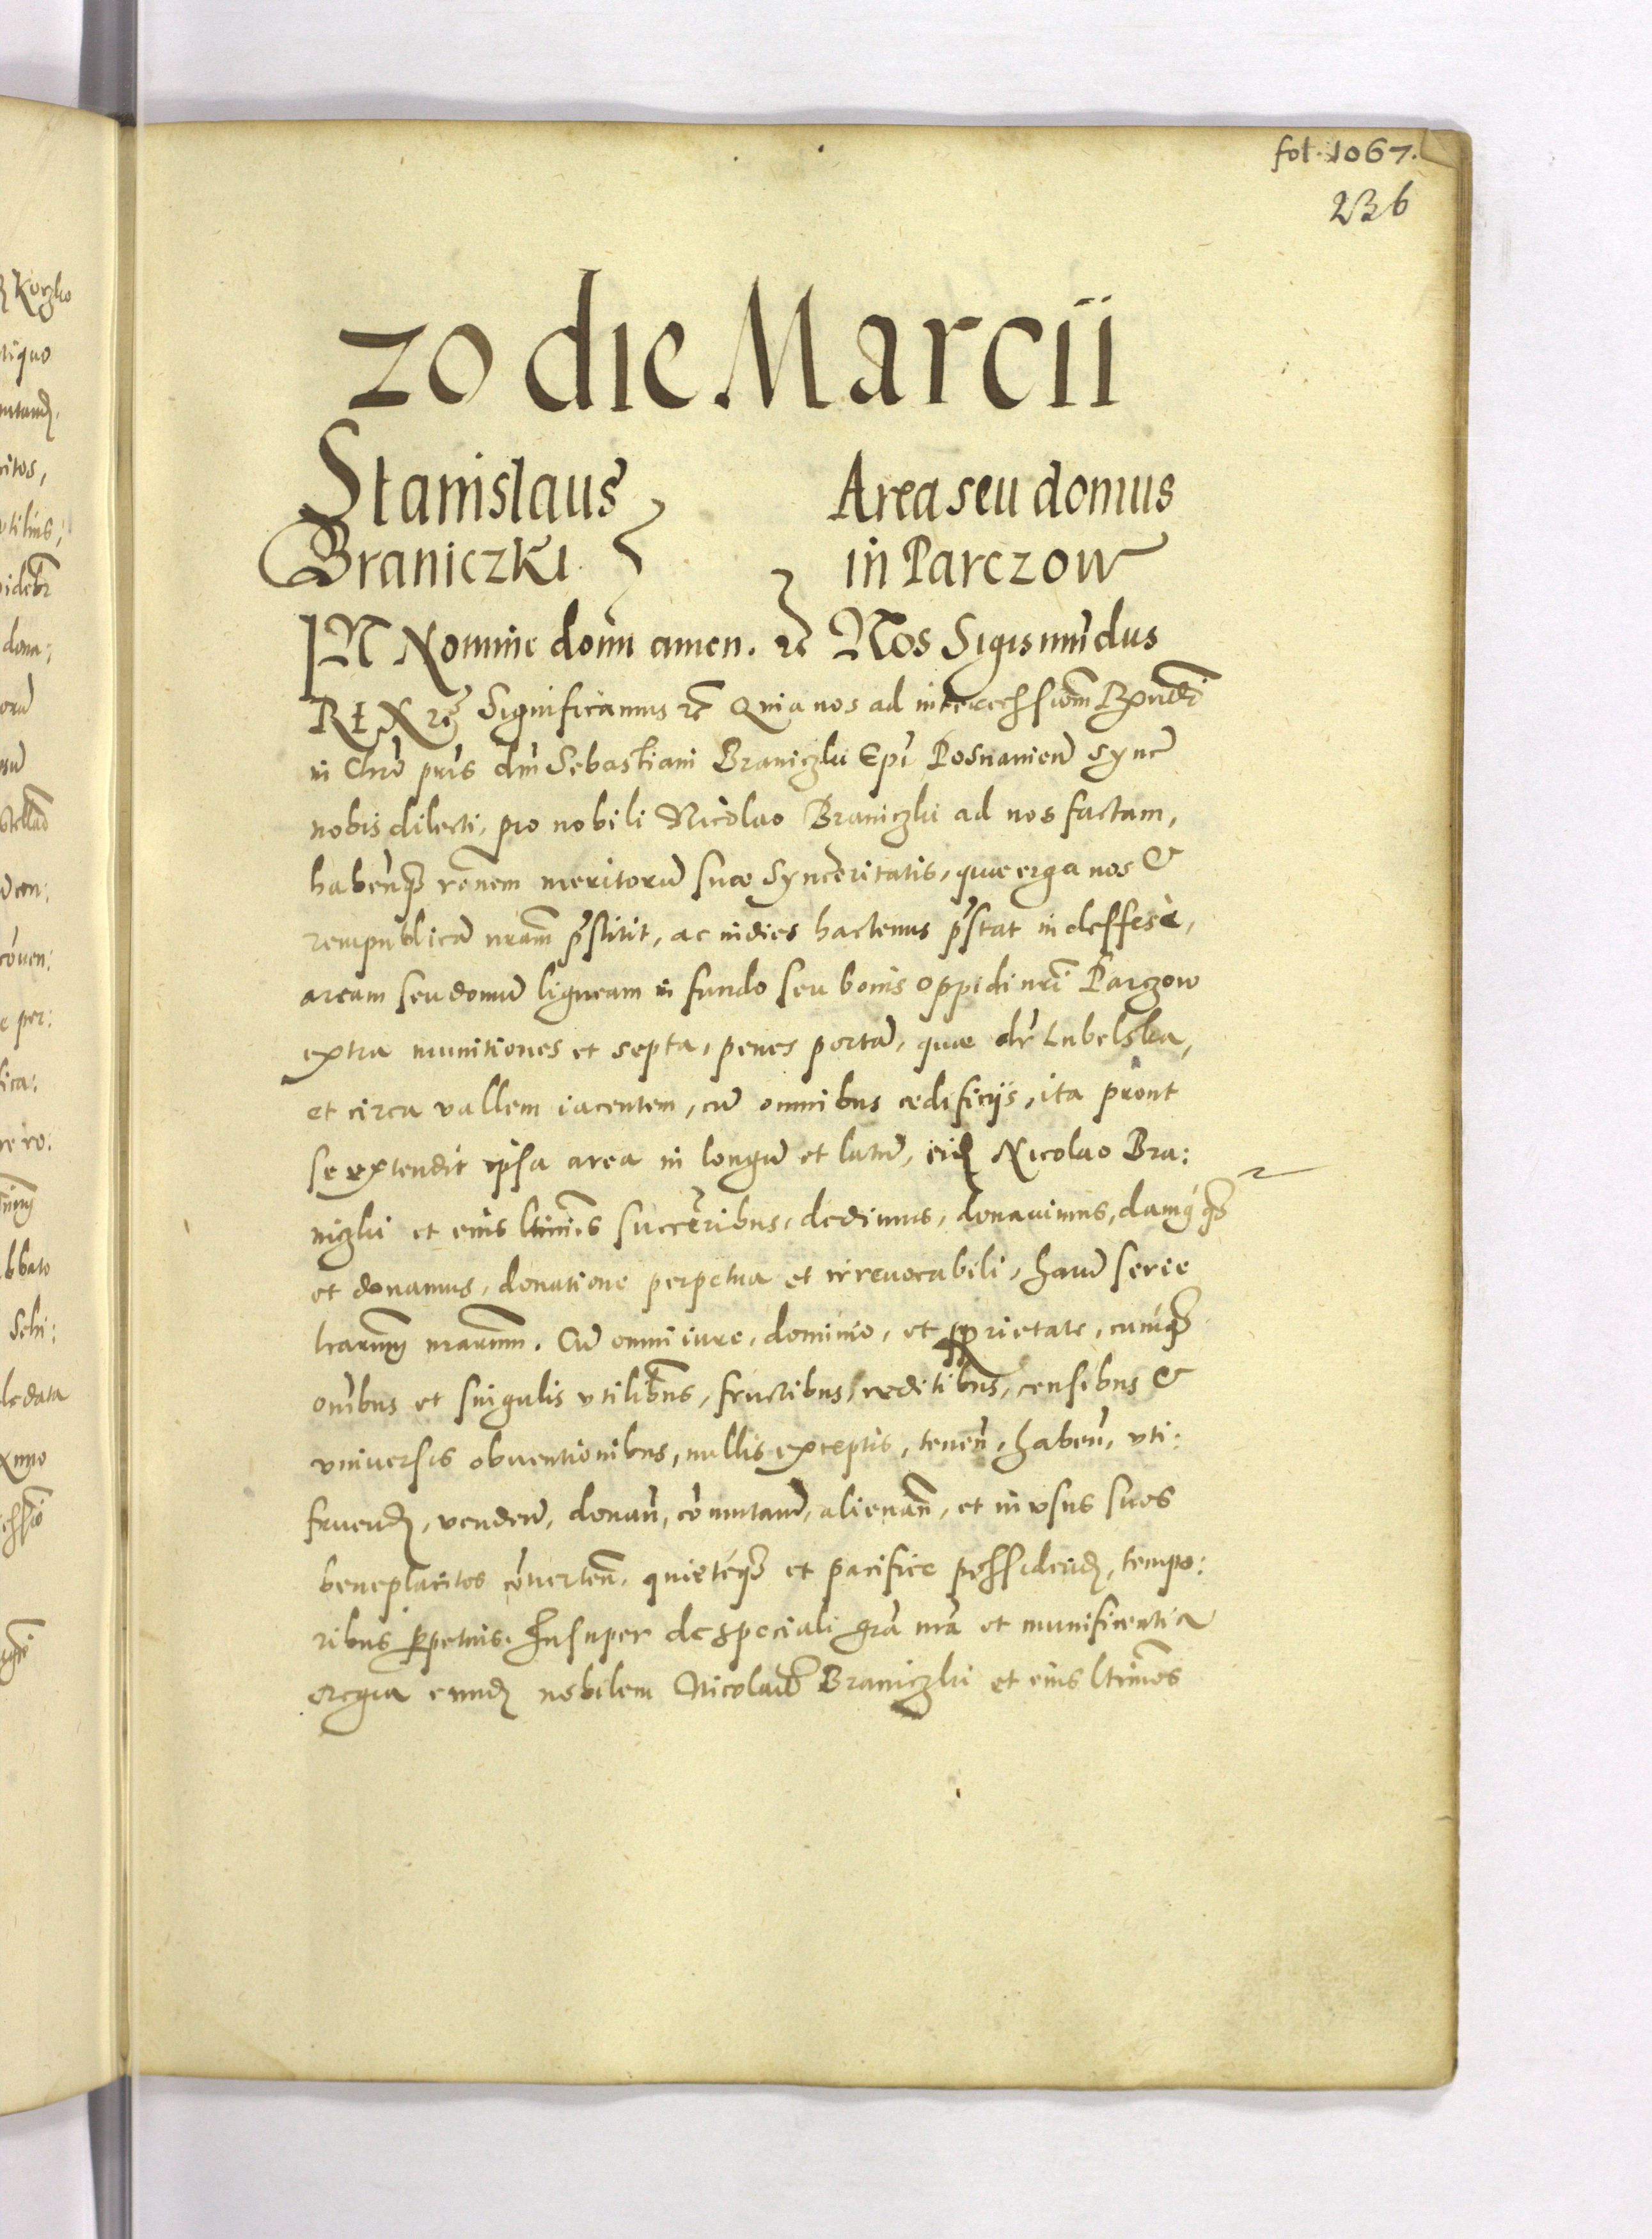 fol. 1067.
236
20 die Marcii
Stanislaus
Braniczki
Area seu domus
in Parczow
IN Nomine domi amen. etc Nos Sigismūdus
REX etc Significamus etc Quia nos ad intercessiom̄ Rx̄ndi
in Chrō pr̄is dn̄i Sebastiani Braniczki Epī Posnanien̄ sync̄
nobis dilecti, pro nobili Nicolao Braniczki ad nos factam,
haben̄q₃ rōnem meritorū suæ synceritatis, quæ erga nos &
rempublicā nr̄am p̄stitit, ac indies hactenus p̄stat indeffesè,
aream seu domū ligneam in fundo seu bonis oppidi nr̄i Parczow
extra munitiones et septa, penes portā, quæ dr̄ Lubelska,
et circa vallem iacentem, cū omnibus ædificijs, ita prout
se extendit ipsa area in longū et latū, eid Nicolao Bra:
niczki et eius ltimis succēribus, dedimus, donauimus, damq₃
et donamus, donatione perpetua et irreuocabili, harū serie
lrarum nrarum. Cū omni iure, dominio, et pprietate, cumq₃
om̄ibus et singulis vtilibus, fructibus, reditibus, censibus &
vniuersis obuentionibus, nullis exceptis, tenen̄, haben̄, vti:
fruend, venden̄, donan̄, cōmutan̄, alienan̄, et in vsus suos
beneplacitos cōuerten̄, quieteq₃ et pacifice possidend, tempo:
ribus ppetuis. Insuper de speciali grā nrā et munificentia
regia eund nobilem Nicolaū Braniczki et eius ltimos